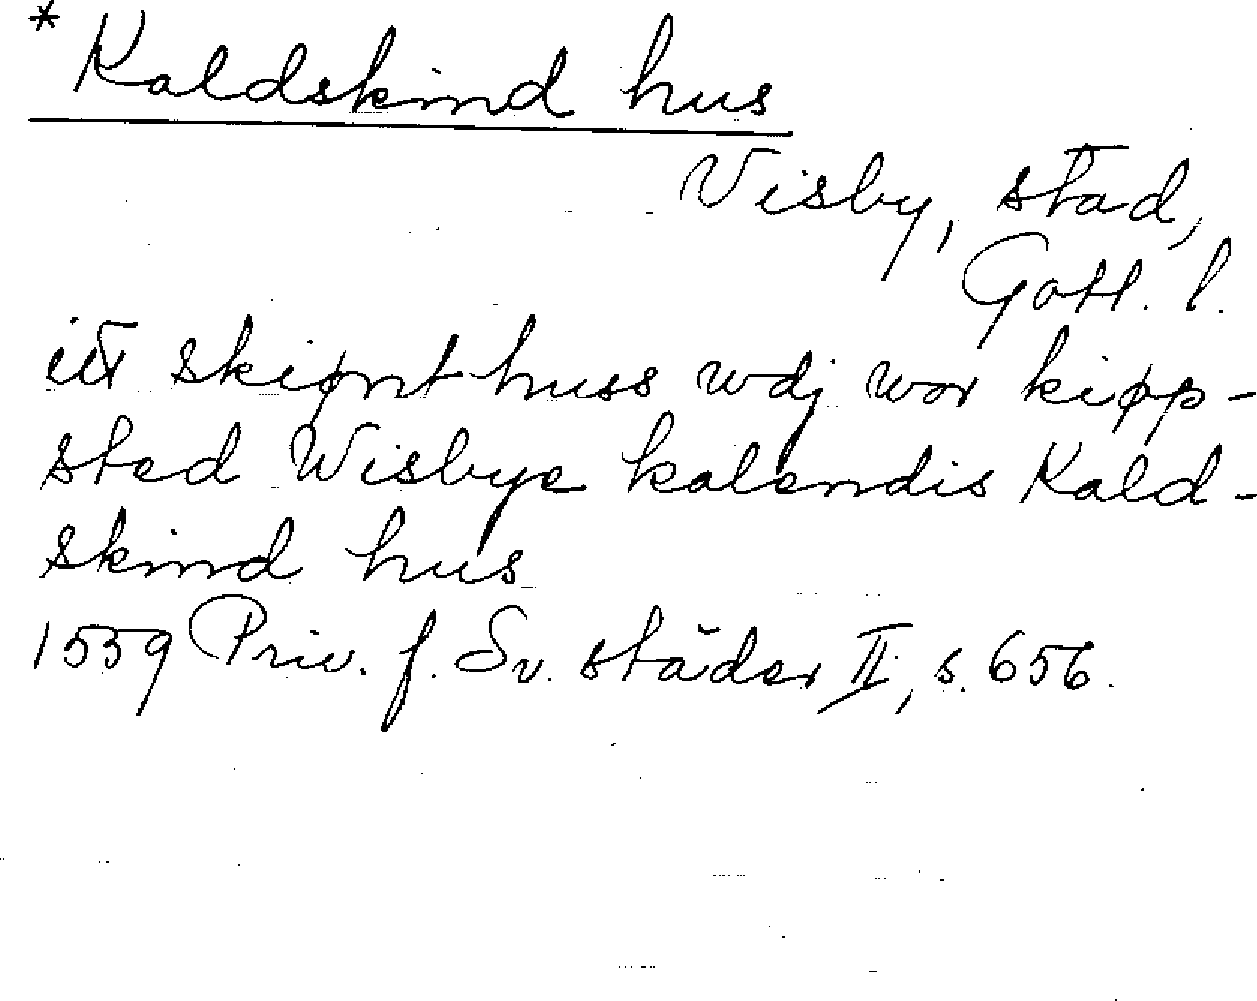 *Kaldskind hus
Visby, stad,
Gotl. l.
itt skiønt huss wdj wor kiøp-
sted Wisbye kalendis Kald-
skind hus
1559 Priv. f. Sv. städer II, s. 656.